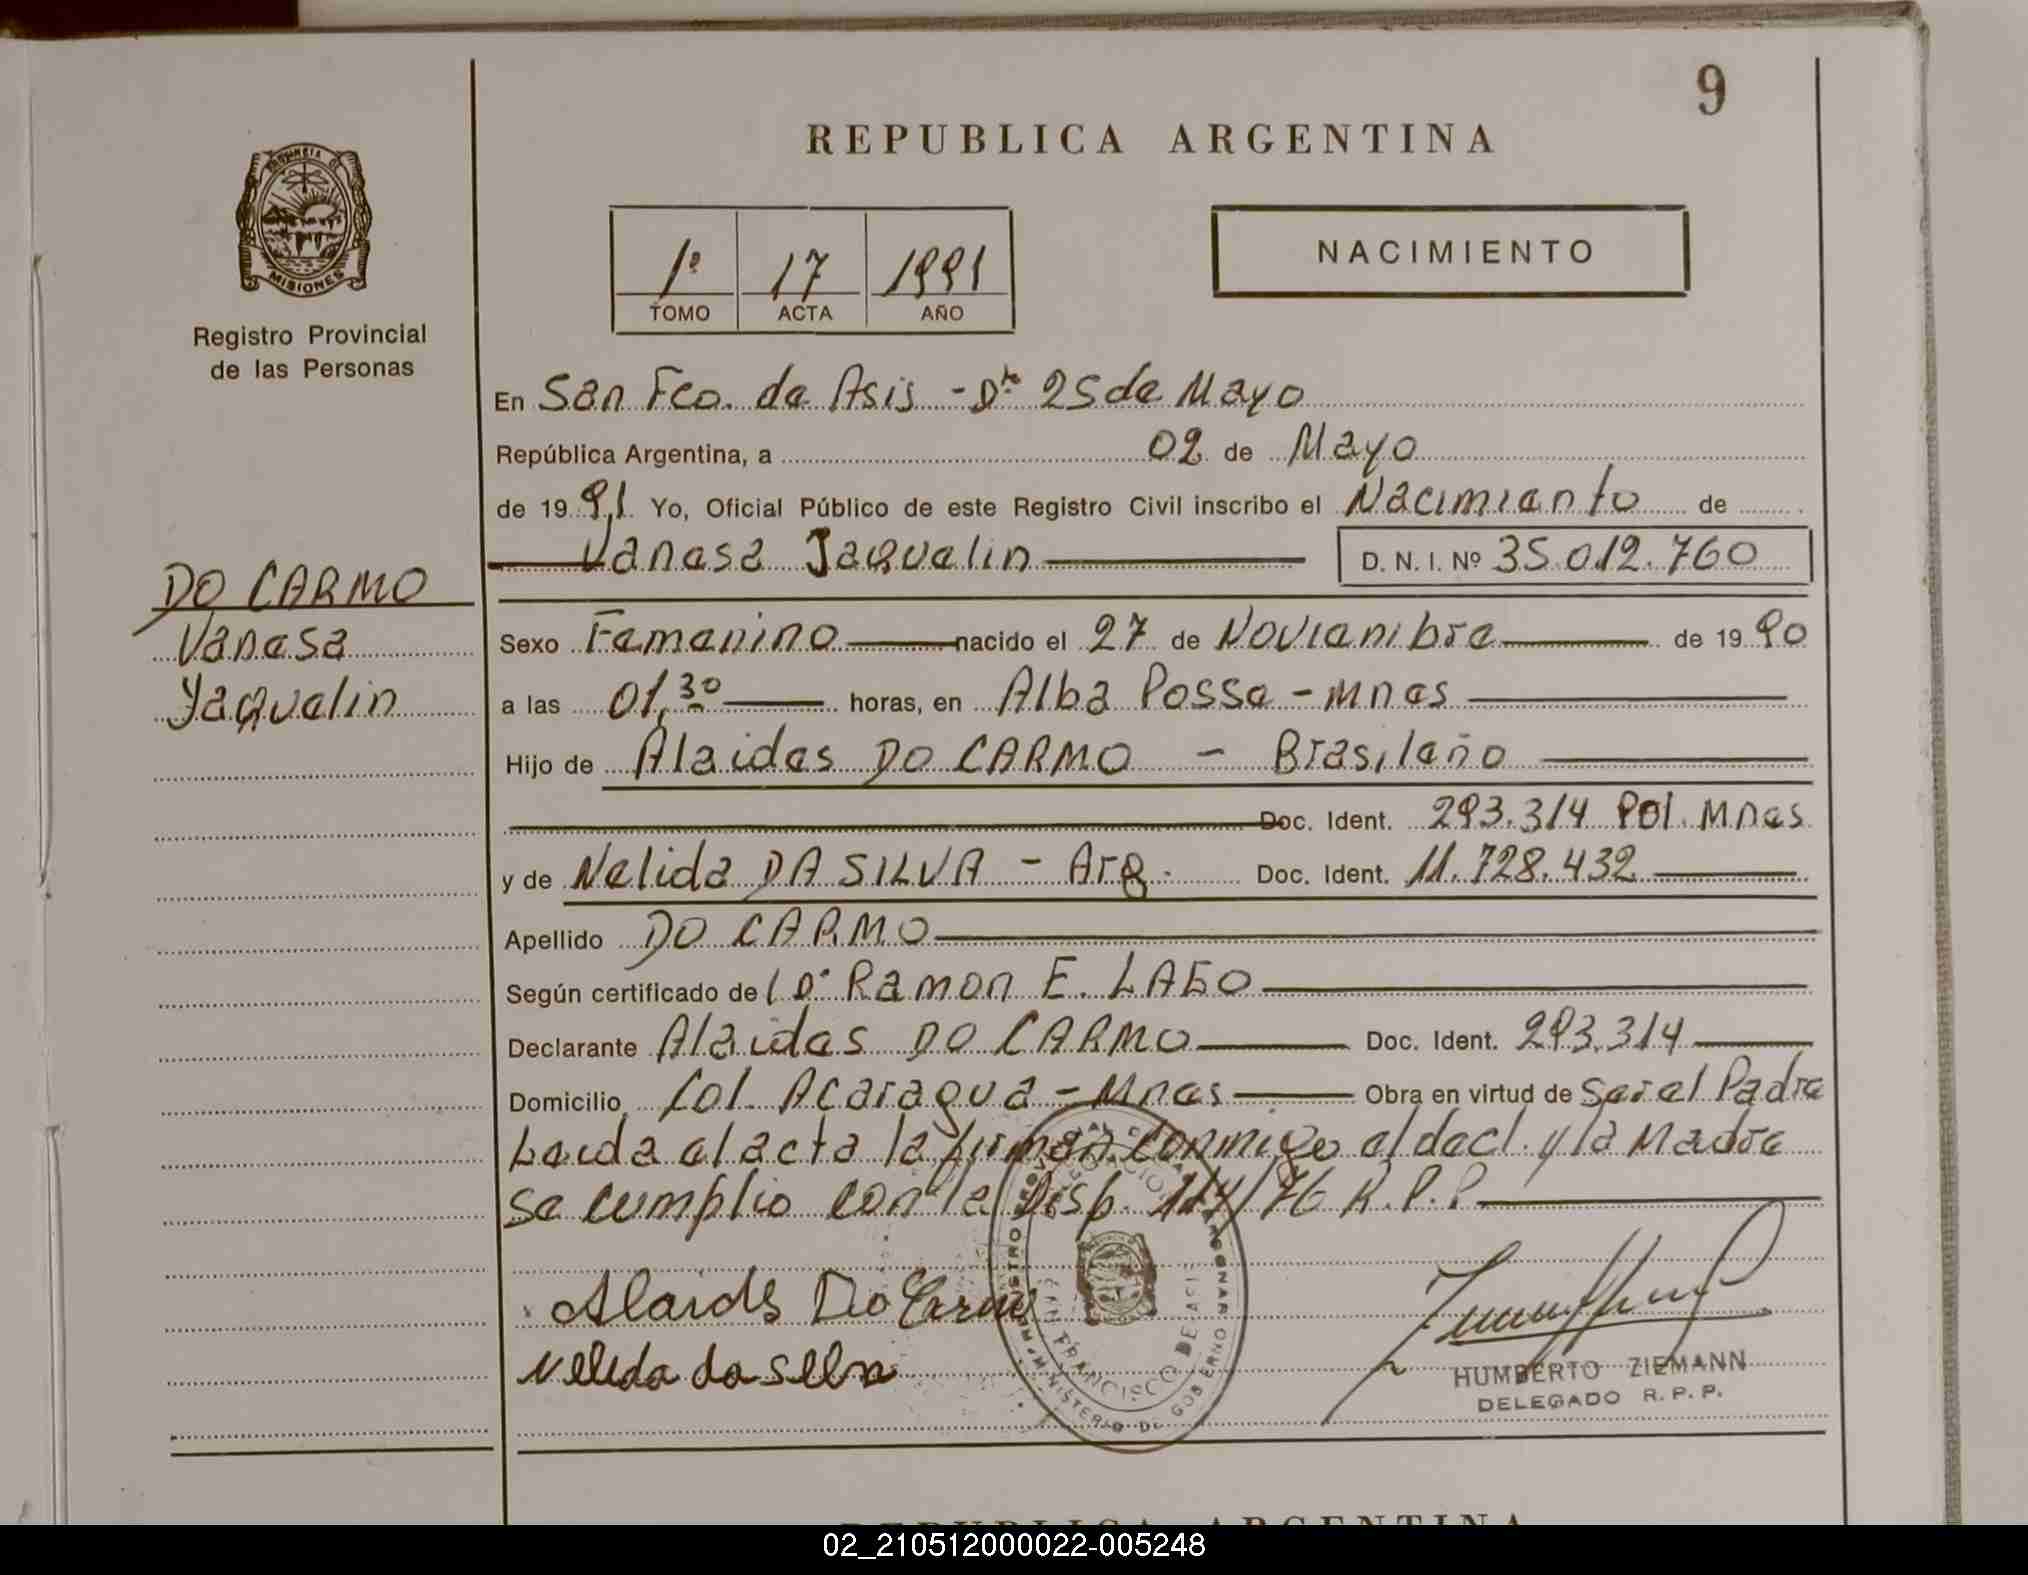 9
REPUBLICA ARGENTINA
PROVINCIA D
MISIONES
Registro Provincial
de las Personas
1º 17 1991
TOMO ACTA AÑO
NACIMIENTO
En San Fco. de Asis - Dto 25 de Mayo
República Argentina, a 02 de Mayo
de 1991 Yo, Oficial Público de este Registro Civil inscribo el Nacimiento de
Vanesa Jaquelin D. N. I. Nº 35.012.760
DO CARMO
Vanesa
Yaquelin
Sexo Femenino nacido el 27 de Noviembre de 1990
a las 01,30 horas, en Alba Posse - Mnes
Hijo de Alaides DO CARMO - Brasileño
Doc. Ident. 293.314 Pol. Mnes
y de Nelida DA SILVA - Arg. Doc. Ident. 11.728.432
Apellido DO CARMO
Según certificado del Dr Ramon E. LAGO
Declarante Alaides DO CARMO Doc. Ident. 293.314
Domicilio Col. Acaragua - Mnes Obra en virtud de Ser el Padre
Leida el acta la firman conmigo el decl. y la Madre
se cumplio con la Disp. 114/76 R.P.P.
Alaids Do Carmo
Nelida da Selva
FRANCISCO DE ASI
MINISTERIO DE GOBIERNO
HUMBERTO ZIEMANN
DELEGADO R. P. P.
REPUBLICA ARGENTINA
02_210512000022-005248